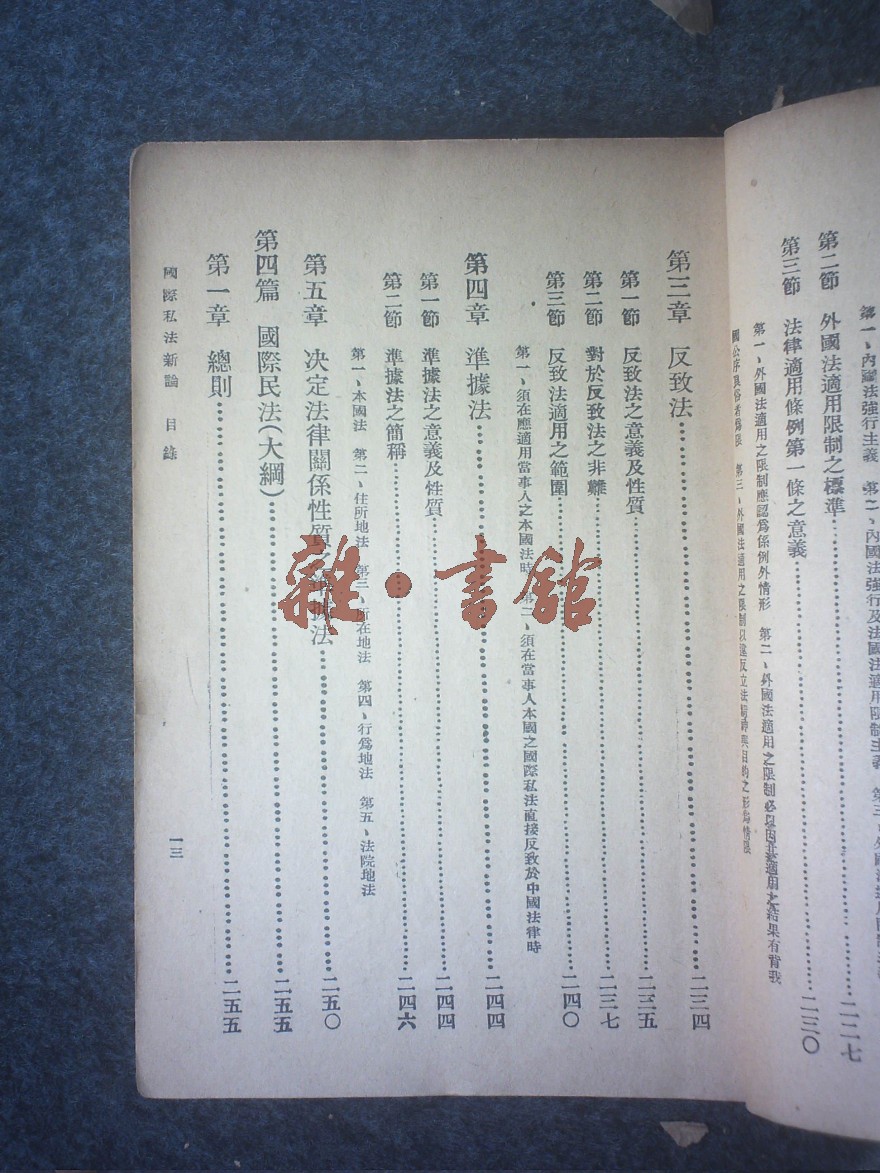 第一、內國法強行主義　第二、內國法強行及法國法適用限制主義　第三、外國法
第二節　外國法適用限制之標準…………二二七
第三節　法律適用條例第一條之意義…………二三〇
第一、外國法適用之限制應認爲係例外情形　第二、外國法適用之限制必以因其適用之結果有背我
國公序良俗者爲限　第三、外國法適用之限制以違反立法
第三章　反致法…………二三四
第一節　反致法之意義及性質…………二三五
第二節　對於反致法之非難…………二三七
第三節　反致法適用之範圍…………二四〇
第一、須在應適用當事人之本國法時　第二、須在當事人本國之國際私法直接反致於中國法律時
第四章　準據法…………二四四
第一節　準據法之意義及性質…………二四四
第二節　準據法之簡稱…………二四六
第一、本國法　第二、住所地法　第三、所在地法　第四、行爲地法　第五、法院地法
第五章　決定法律關係性質之準據法…………二五〇
第四篇　國際民法(大綱)…………二五五
第一章　總則…………二五五
國際私法新論　目錄　一三
雜·書館